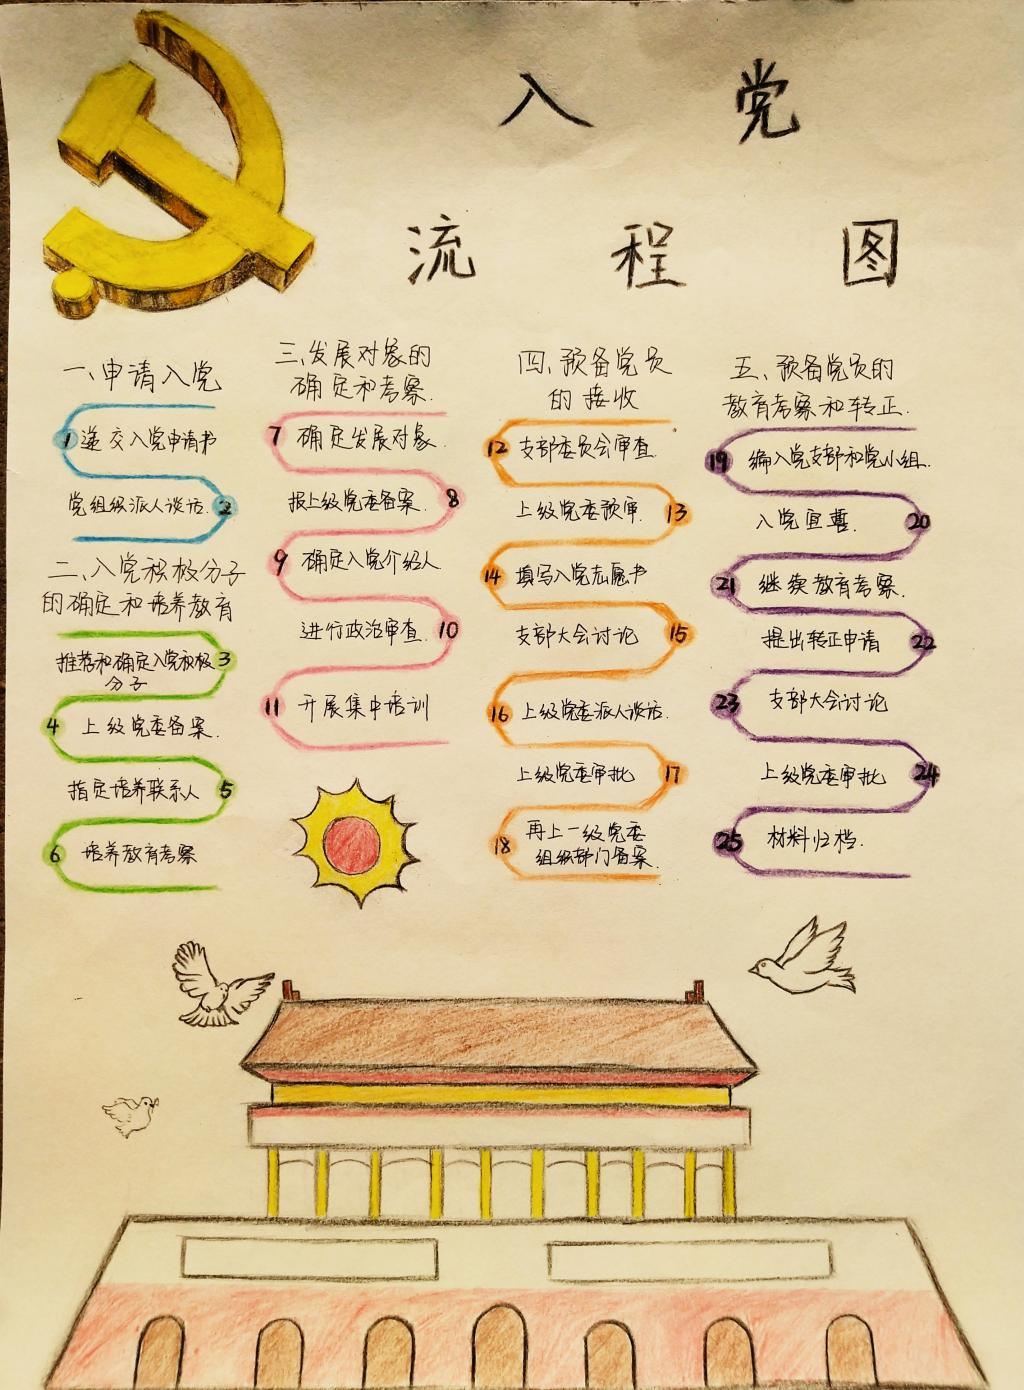 入党
流程图
一、申请入党
1 递交入党申请书
党组织派人谈话. 2
二、入党积极分子
的确定和培养教育
推荐和确定入党积极 3
分子
4 上级党委备案.
指定培养联系人 5
6 培养教育考察
三、发展对象的
确定和考察.
7 确定发展对象.
报上级党委备案. 8
9 确定入党介绍人
进行政治审查. 10
11 开展集中培训
四、预备党员
的接收
12 支部委员会审查.
上级党委预审. 13
14 填写入党志愿书
支部大会讨论 15
16 上级党委派人谈话.
上级党委审批 17
18 再上一级党委
组织部门备案.
五、预备党员的
教育考察和转正.
19 编入党支部和党小组.
入党宣誓. 20
21 继续教育考察.
提出转正申请 22
23 支部大会讨论
上级党委审批 24
25 材料归档.